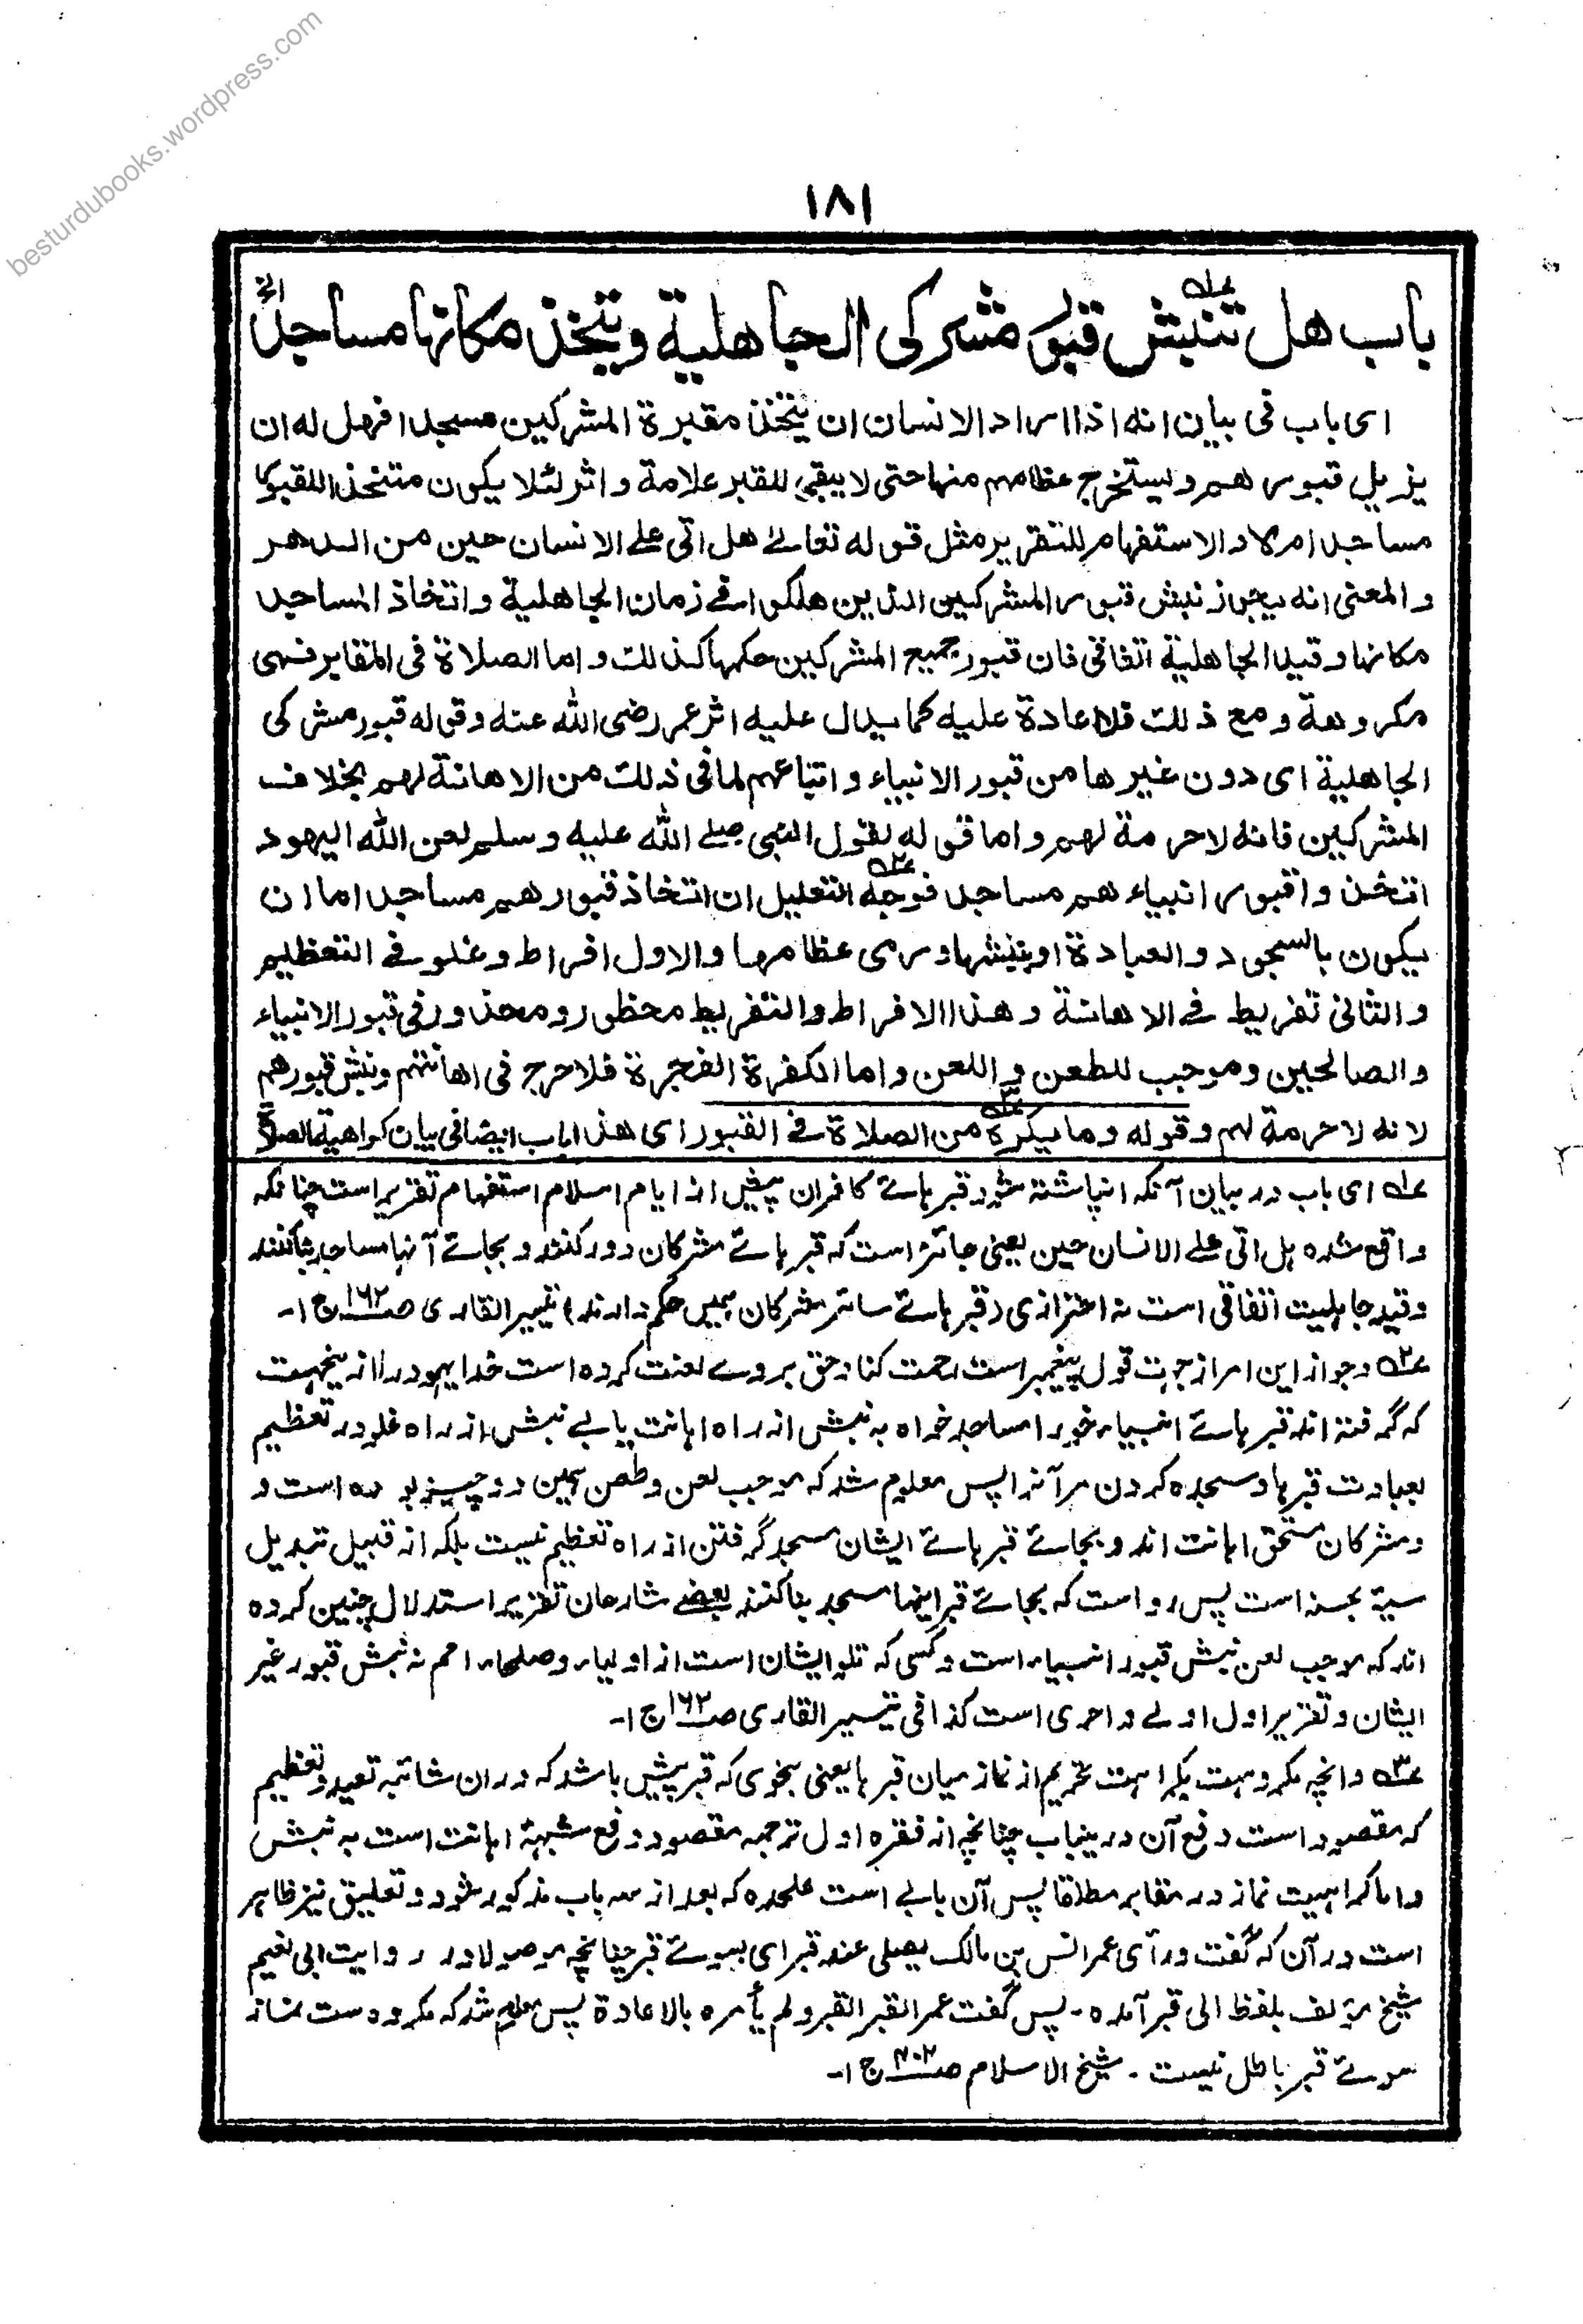 besturdubooks.wordpress.com
۱۸۱
باب هل تنبش قبور مشركى الجاهلية ويتخذ مكانها مساجد الخ
اى باب فى بيان انه اذا اراد الانسان ان يتخذ مقبرة المشركين مسجدا فهل له ان
يزيل قبورهم ويستخرج عظامهم منها حتى لا يبقى للقبر علامة واثر لئلا يكون متخذا للقبور
مساجد ام لا والاستفهام للتقرير مثل قوله تعالى هل اتى على الانسان حين من الدهر
والمعنى انه يجوز نبش قبور المشركين الذين هلكوا فى زمان الجاهلية واتخاذ المساجد
مكانها وقيد الجاهلية اتفاقى فان قبور جميع المشركين حكمها كذلك واما الصلاة فى المقابر فهى
مكروهة ومع ذلك فلا اعادة عليه كما يدل عليه اثر عمر رضى الله عنه وقوله قبور مشركى
الجاهلية اى دون غيرها من قبور الانبياء واتباعهم لما فى ذلك من الاهانة لهم بخلاف
المشركين فانه لا حرمة لهم واما قوله لقول النبى صلى الله عليه وسلم لعن الله اليهود
اتخذوا قبور انبياءهم مساجد فوجه۲ التعليل ان اتخاذ قبورهم مساجد اما ان
يكون بالسجود والعبادة او بنبشها ورمى عظامها والاول افراط وغلو فى التعظيم
والثانى تفريط فى الاهانة وهذا الافراط والتفريط محظور ومحذور فى قبور الانبياء
والصالحين وموجب للطعن واللعن واما الكفرة الفجرة فلا حرج فى اهانتهم ونبش قبورهم
لانه لا حرمة لهم وقوله وما يكره۳ من الصلاة فى القبور اى هذا الباب ايضا فى بيان كراهية الصلاة
۱ اى باب در بيان آنكه انباشته شود قبر هائے كافران پيشين از ايام اسلام استفهام تقرير است چنانكه
واقع شده هل اتى على الانسان حين يعنى جائز است كه قبر هائے مشركان دور كنند و بجائے آنها مساجد بنا كنند
وقيد جاهليت اتفاقى است نه احترازى (قبر هائے سائر مشركان همين حكم دارند) تيسير القارى صـ۱۶۲ ج ۱-
۲ وجواز اين امر از جهت قول پيغمبر است رحمت كناد حق بروے لعنت كرده است خدا يهود را از ينجهت
كه گرفته اند قبر هائے انبياء خود را مساجد خواه به نبش از راه اهانت يا بے نبش از راه غلو در تعظيم
بعبادت قبرها و سجده كردن مر آنرا پس معلوم شد كه موجب لعن وطعن همين دو چيز بوده است و
ومشركان مستحق اهانت اند و بجائے قبر هائے ايشان مسجد گرفتن از راه تعظيم نيست بلكه از قبيل تبديل
سيئة بحسنه است پس روا است كه بجائے قبر اينها مسجد بنا كنند بعضے شارحان تقرير استدلال چنين كرده
اند كه موجب لعن نبش قبور انبياء است و كسى كه تلو ايشان است از اولياء وصلحاء امم نه نبش قبور غير
ايشان وتقرير اول اولے و احرى است كذا فى تيسير القارى صـ۱۶۲ ج ۱-
۳ وانچه مكروهست بكراهت تحريم از نماز ميان قبرها يعنى بنحوى كه قبر پيشين باشد كه دران شائبه تعبد وتعظيم
كه مقصود است دفع آن درينباب چنانچه از فقره اول ترجمه مقصود دفع شبهۂ اهانت است به نبش
واما كراهيت نماز در مقابر مطلقا پس آن بابے است علحده كه بعد از سه باب مذكور شود و تعليق نيز ظاهر
است در آن كه گفت ورآى عمر انس بن مالك يصلى عند قبر اى بسوئے قبر چنانچه موصولا در روايت ابى نعيم
شيخ مؤلف بلفظ الى قبر آمده - پس گفت عمر القبر القبر ولم يأمره بالاعادة پس معلوم شد كه مكروه است نماز
سوئے قبر باطل نيست - شيخ الاسلام صـ۴۰۲ ج ۱-